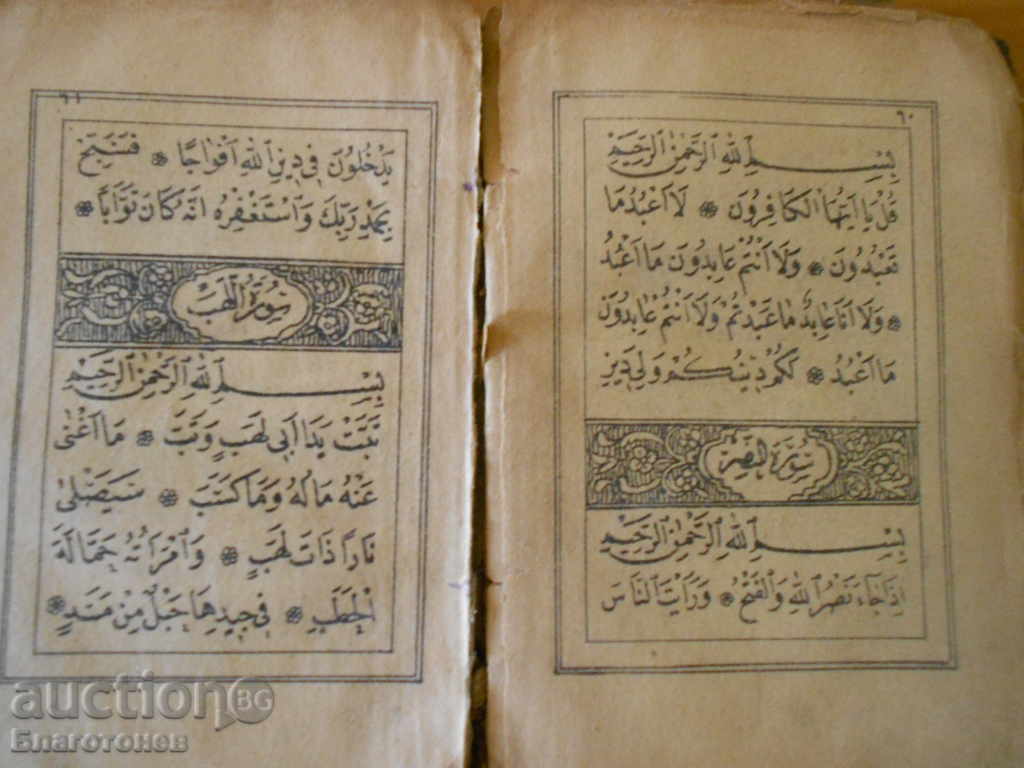 ٦٠
بِسْمِ اللهِ الرَّحْمٰنِ الرَّحِيمِ
قُلْ يَا اَيُّهَا الْكَافِرُونَ ❋ لَا اَعْبُدُ مَا
تَعْبُدُونَ ❋ وَلَا اَنْتُمْ عَابِدُونَ مَا اَعْبُدُ
❋ وَلَا اَنَا عَابِدٌ مَا عَبَدْتُمْ وَلَا اَنْتُمْ عَابِدُونَ
مَا اَعْبُدُ ❋ لَكُمْ دِينُكُمْ وَلِيَ دِينِ
سُورَةُ النَّصْرِ
بِسْمِ اللهِ الرَّحْمٰنِ الرَّحِيمِ
اِذَا جَاءَ نَصْرُ اللهِ وَالْفَتْحُ ❋ وَرَاَيْتَ النَّاسَ
٦١
يَدْخُلُونَ فِي دِينِ اللهِ اَفْوَاجًا ❋ فَسَبِّحْ
بِحَمْدِ رَبِّكَ وَاسْتَغْفِرْهُ اِنَّهُ كَانَ تَوَّابًا ❋
سُورَةُ اللَّهَبِ
بِسْمِ اللهِ الرَّحْمٰنِ الرَّحِيمِ
تَبَّتْ يَدَا اَبِي لَهَبٍ وَتَبَّ ❋ مَا اَغْنٰى
عَنْهُ مَالُهُ وَمَا كَسَبَ ❋ سَيَصْلٰى
نَارًا ذَاتَ لَهَبٍ ❋ وَامْرَاَتُهُ حَمَّالَةَ
الْحَطَبِ ❋ فِي جِيدِهَا حَبْلٌ مِنْ مَسَدٍ ❋
auction BG
Благотонев